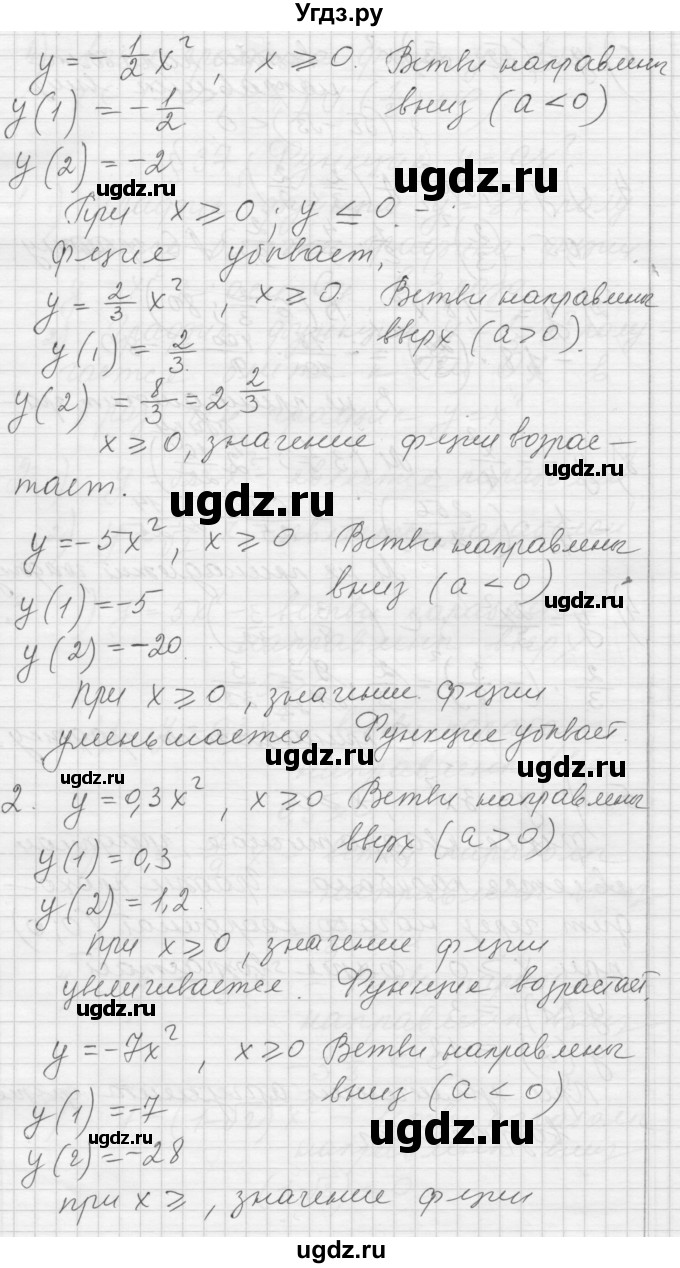 Угдз.ру
y = -1/2 x², x ⩾ 0. Ветви направлены
y(1) = -1/2 вниз (a < 0)
y(2) = -2
ugdz.ru
ugdz.ru
При x ⩾ 0; y ≤ 0. -
фция убывает,
y = 2/3 x², x ⩾ 0. Ветви направлены
y(1) = 2/3 вверх (a > 0).
ugdz.ru
y(2) = 8/3 = 2 2/3
x ⩾ 0, значение фции возрас-
ugdz.ru
тает.
ugdz.ru
y = -5x², x ⩾ 0 Ветви направлены
y(1) = -5 вниз (a < 0)
ugdz.ru
y(2) = -20.
при x ⩾ 0, значение фции
уменьшается Функция убывает.
ugdz.ru
ugdz.ru
ugdz.ru
2. y = 0,3x², x ⩾ 0 Ветви направлены
y(1) = 0,3 вверх (a > 0)
y(2) = 1,2.
при x ⩾ 0, значение фции
увеличивается. Функция возрастает.
ugdz.ru
y = -7x², x ⩾ 0 Ветви направлены
y(1) = -7 вниз (a < 0)
ugdz.ru
ugdz.ru
y(2) = -28
при x ⩾, значение фции
ugdz.ru